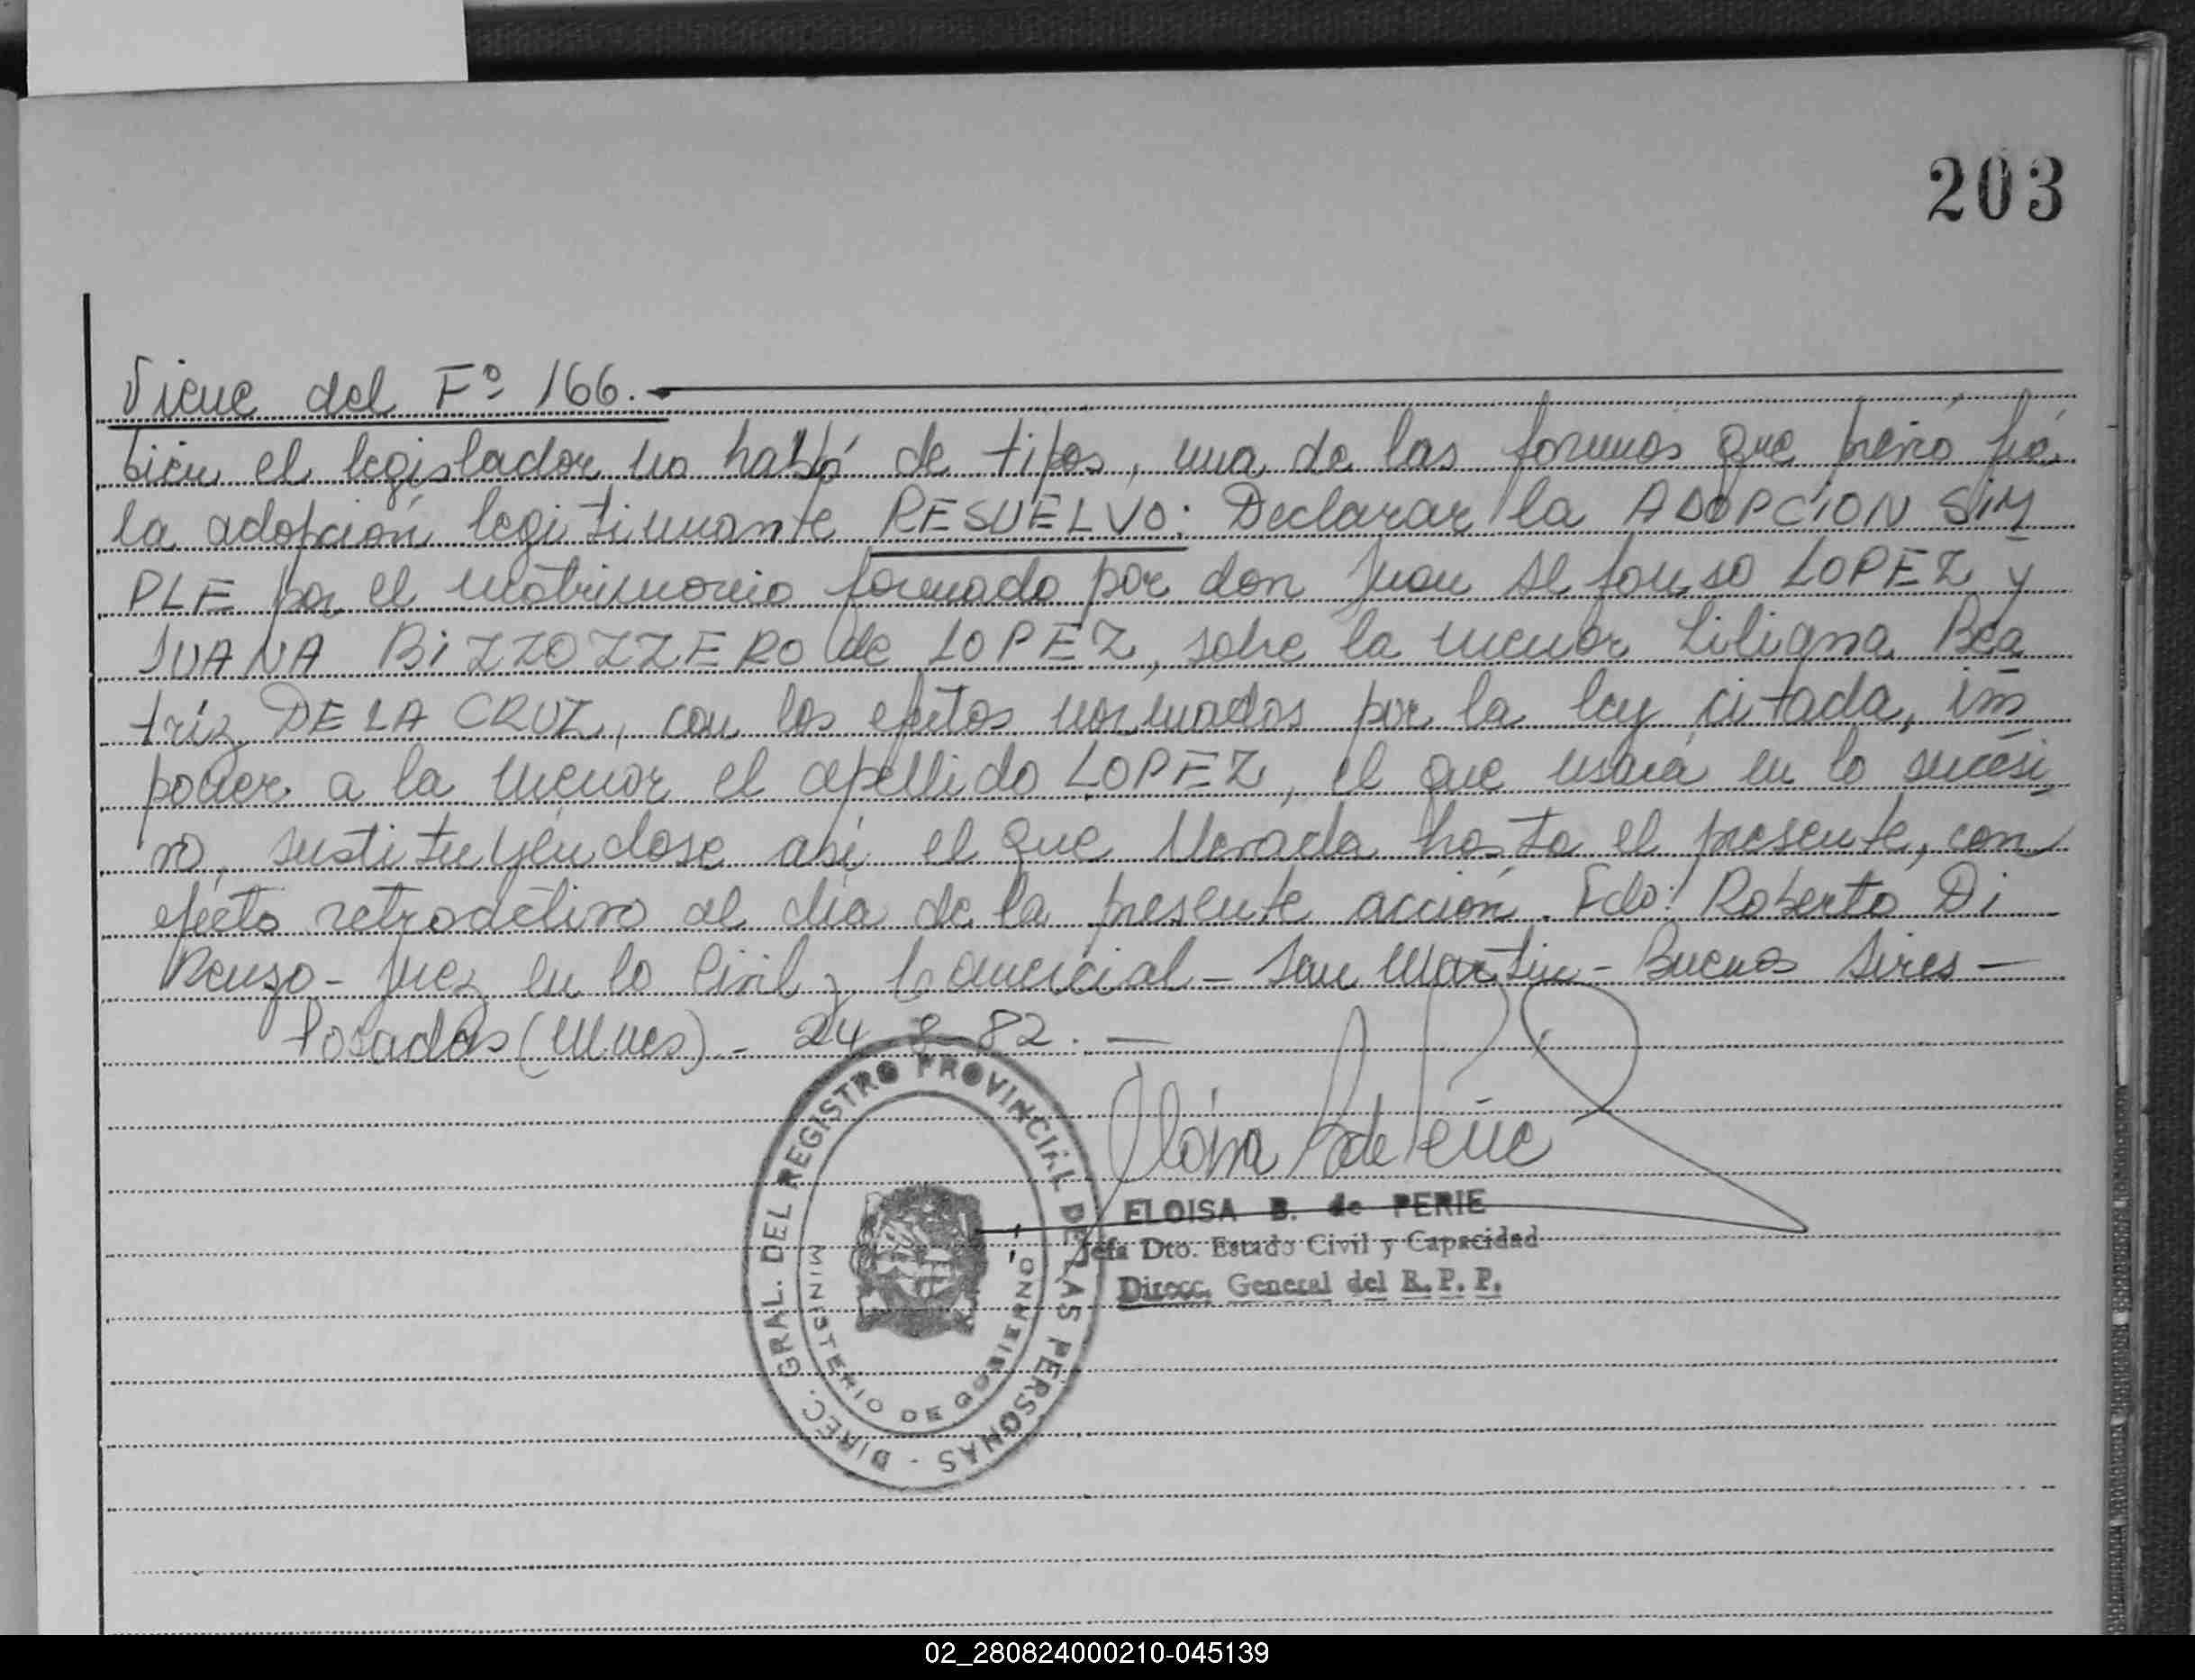 203
Viene del Fº 166.-
bien el legislador no habló de tipos, una de las formas que previó fué
la adopción legitimante RESUELVO: Declarar la ADOPCION SIM
PLE por el matrimonio formado por don Juan Alfonso LOPEZ y
JUANA BIZZOZZERO de LOPEZ, sobre la menor Liliana Bea
triz DE LA CRUZ, con los efectos normados por la ley citada, im
poner a la menor el apellido LOPEZ, el que usará en lo sucesi
vo, sustituyéndose así el que llevada hasta el presente, con
efecto retroactivo al día de la presente acción. Fdo: Roberto Di
Renzo - Juez en lo Civil y Comercial - San Martin - Buenos Aires -
Posadas (Mnes) - 24-8-82.-
Eloisa B de Perie
ELOISA B. de PERIE
Jefa Dto. Estado Civil y Capacidad
Direcc. General del R. P. P.
DIREC. GRAL. DEL REGISTRO PROVINCIAL DE LAS PERSONAS -
MINISTERIO DE GOBIERNO
02_280824000210-045139